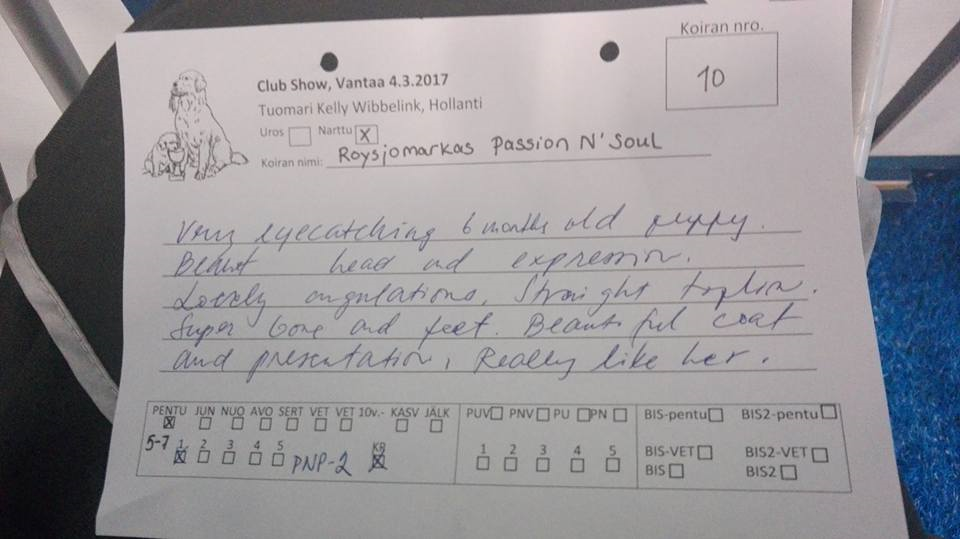 Koiran nro.
10
Club Show, Vantaa 4.3.2017
Tuomari Kelly Wibbelink, Hollanti
Uros Narttu X
Koiran nimi: Roysjomarkas Passion N' Soul
Very eyecatching 6 months old puppy.
head and expression.
Lovely angulations, Straight topline.
Super bone and feet. Beautiful coat
and presentation, Really like her.
PENTU JUN NUO AVO SERT VET VET 10v.- KASV JÄLK
5-7 1 2 3 4 5 PNP-2 KP
PUV PNV PU PN
1 2 3 4 5
BIS-pentu BIS2-pentu
BIS-VET BIS2-VET
BIS BIS2